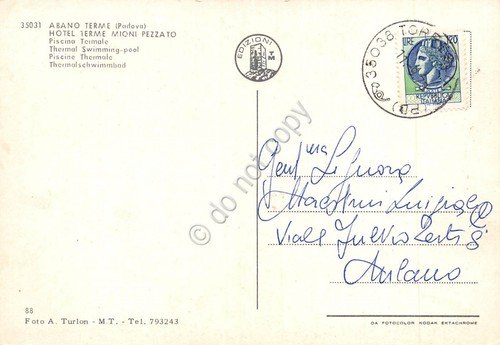 35031 ABANO TERME (Padova)
HOTEL TERME MIONI PEZZATO
Piscina Termale
Thermal Swimming-pool
Piscine Thermale
Thermalschwimmbad
EDIZIONI
A M
35038 TORREGLIA (PD)
LIRE 20
do not copy
Gent.ma Signora
Maestrini Luigia
Viale Fulvio Testi
Milano
88
Foto A. Turlon - M.T. - Tel. 793243
DA FOTOCOLOR KODAK EKTACHROME